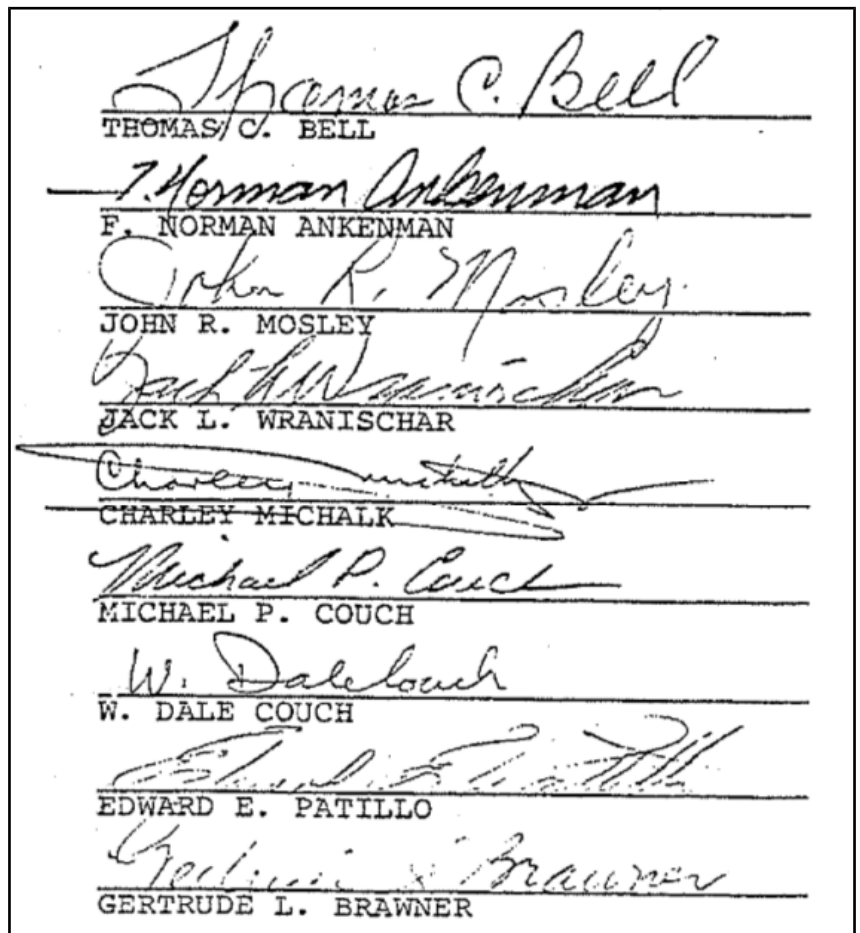 Thomas C. Bell
THOMAS C. BELL
F. Norman Ankenman
F. NORMAN ANKENMAN
John R. Mosley
JOHN R. MOSLEY
Jack L Wranischar
JACK L. WRANISCHAR
Charley Michalk
CHARLEY MICHALK
Michael P. Couch
MICHAEL P. COUCH
W. Dale Couch
W. DALE COUCH
Edward E Patillo
EDWARD E. PATILLO
Gertrude L Brawner
GERTRUDE L. BRAWNER